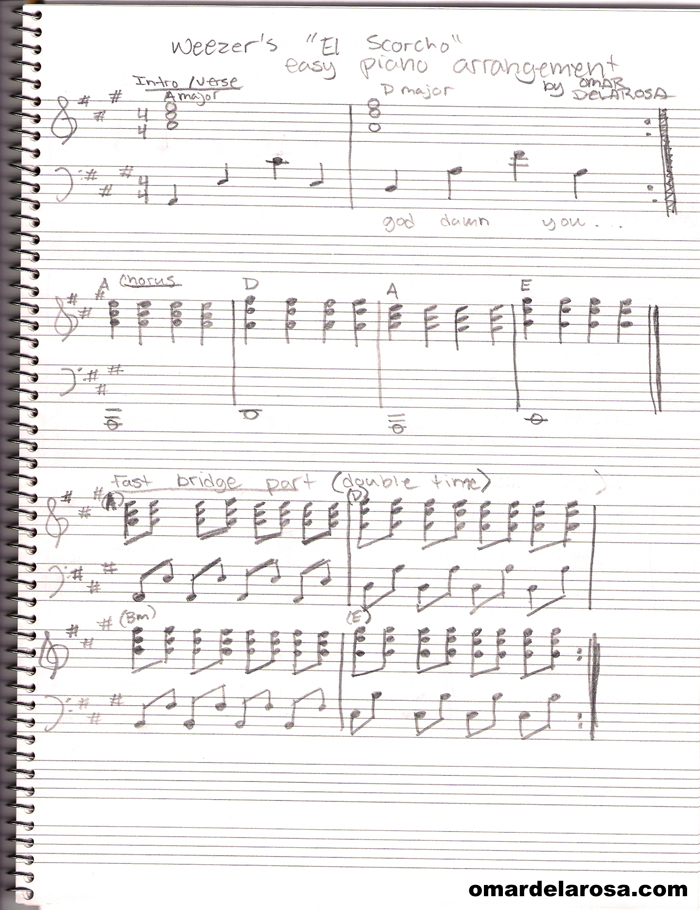 Weezer's "El Scorcho"
easy piano arrangement
by OMAR
DELAROSA
Intro/Verse
A major D major
4 4
4 4
god damn you...
Chorus
A D A E
Fast bridge part (double time)
(A) (D)
(Bm) (E)
omardelarosa.com